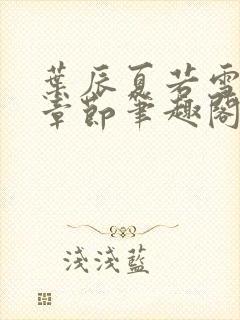 葉辰夏若雪
章節筆趣閣
淺淺藍